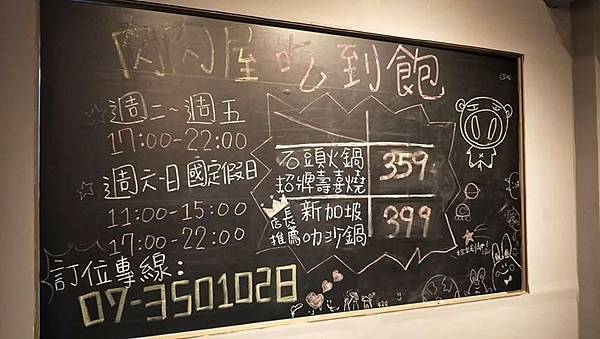 肉肉屋吃到飽
週二~週五
17:00-22:00
週六~日國定假日
11:00-15:00
17:00-22:00
訂位專線:
07-3501028
石頭火鍋
招牌壽喜燒
359
店長推薦
新加坡
叻沙鍋
399